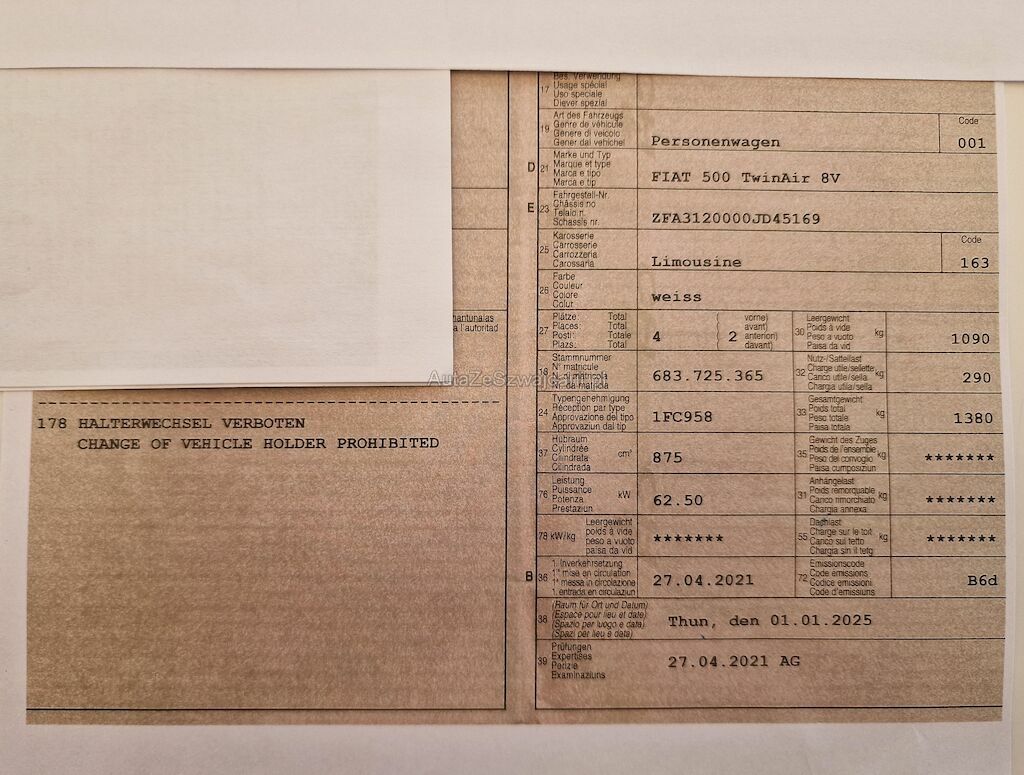 17 Bes. Verwendung
Usage spécial
Uso speciale
Diever spezial
19 Art des Fahrzeugs
Genre de véhicule
Genere di veicolo
Gener dal vehichel
Personenwagen
Code
001
D 21 Marke und Typ
Marque et type
Marca e tipo
Marca e tip
FIAT 500 TwinAir 8V
E 23 Fahrgestell-Nr.
Châssis no
Telaio n.
Schassis nr.
ZFA3120000JD45169
25 Karosserie
Carrosserie
Carrozzeria
Carossaria
Limousine
Code
163
26 Farbe
Couleur
Colore
Colur
weiss
27 Plätze: Total
Places: Total
Posti: Totale
Plazs: Total
4
( vorne)
avant)
2 anteriori)
( davant)
30 Leergewicht
Poids à vide
Peso a vuoto
Paisa da vid
kg
1090
a l'autoritad
18 Stammnummer
N° matricule
N. di matricola
Nr. da matricla
683.725.365
32 Nutz-/Sattellast
Charge utile/sellette
Carico utile/sella
Chargia utila/sella
kg
290
AutaZeSzwaj
24 Typengenehmigung
Réception par type
Approvazione del tipo
Approvaziun dal tip
1FC958
33 Gesamtgewicht
Poids total
Peso totale
Paisa totala
kg
1380
178 HALTERWECHSEL VERBOTEN
CHANGE OF VEHICLE HOLDER PROHIBITED
37 Hubraum
Cylindrée
Cilindrata
Cilindrada
cm³
875
35 Gewicht des Zuges
Poids de l'ensemble
Peso del convoglio
Paisa cumposiziun
kg
*******
76 Leistung
Puissance
Potenza
Prestaziun
kW
62.50
31 Anhängelast
Poids remorquable
Carico rimorchiato
Chargia annexa
kg
*******
78 kW/kg
Leergewicht
poids à vide
peso a vuoto
paisa da vid
*******
55 Dachlast
Charge sur le toit
Carico sul tetto
Chargia sin il tetg
kg
*******
B 36 1. Inverkehrsetzung
1re mise en circulation
1a messa in circolazione
1. entrada en circulaziun
27.04.2021
72 Emissionscode
Code émissions
Codice emissioni
Code d'emissiuns
B6d
38 (Raum für Ort und Datum)
(Espace pour lieu et date)
(Spazio per luogo e data)
(Spazi per lieu e data)
Thun, den 01.01.2025
39 Prüfungen
Expertises
Perizie
Examinaziuns
27.04.2021 AG